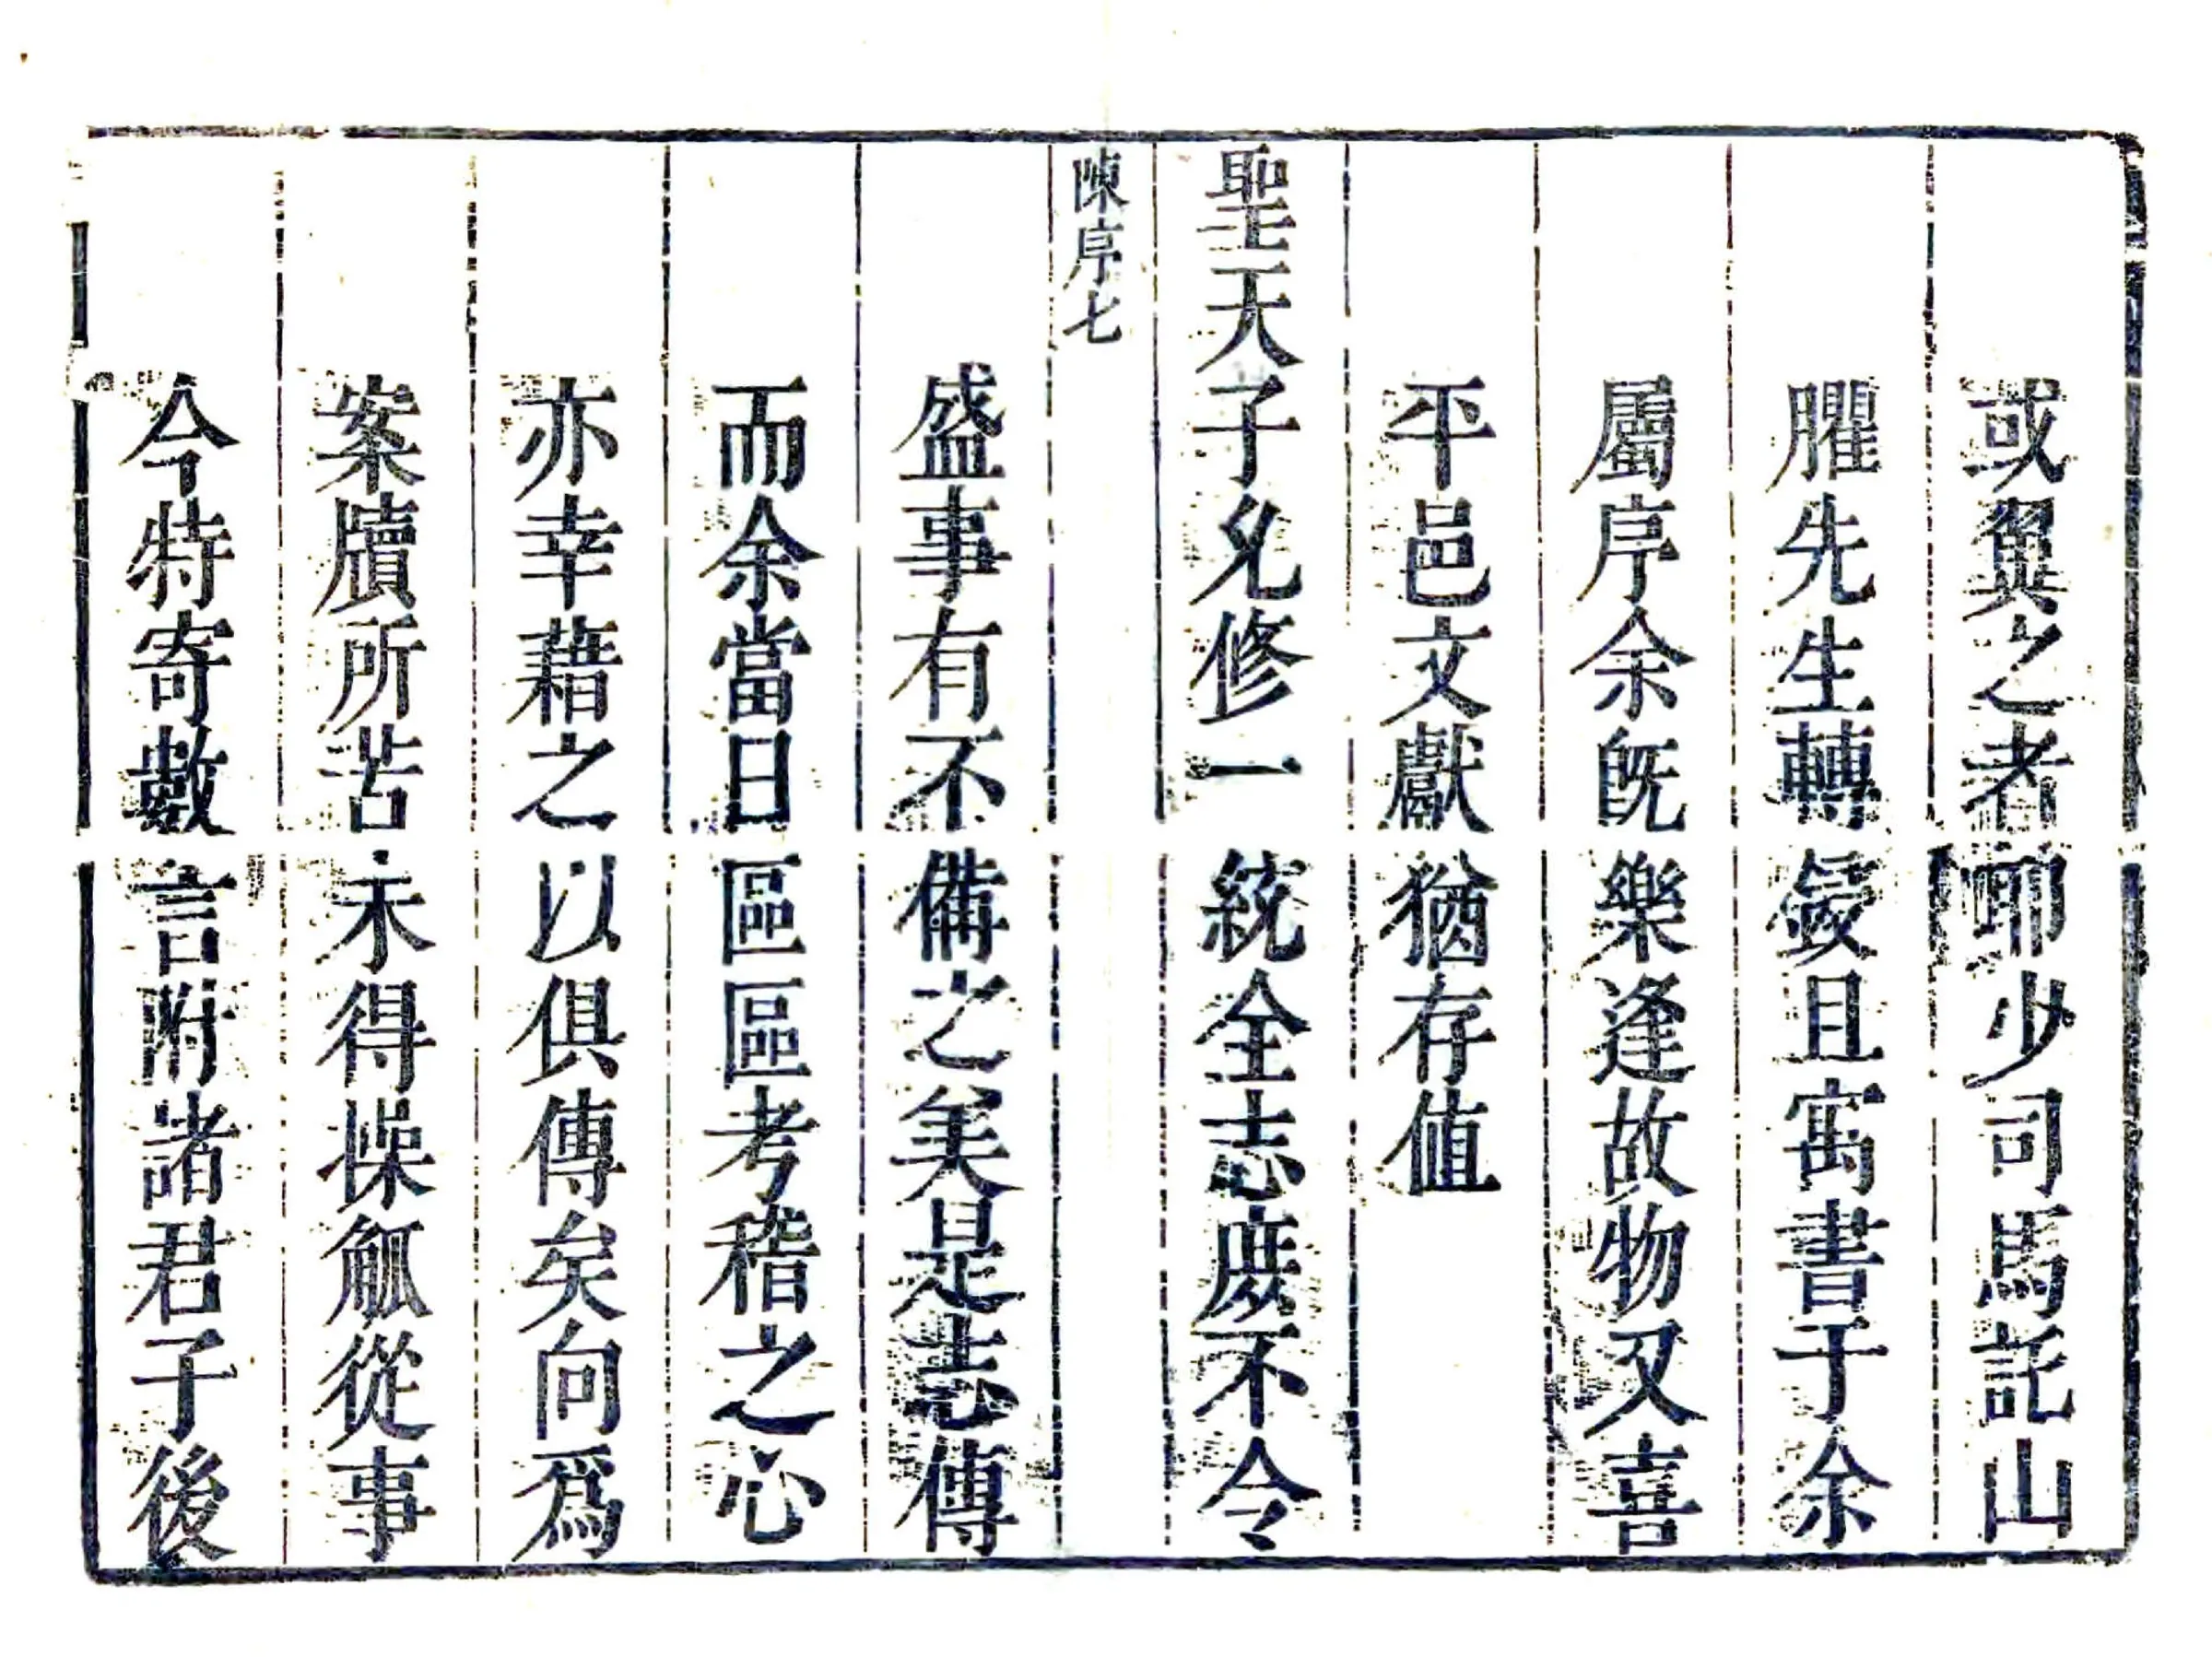 或翼之者耶少司馬託山
臞先生轉鋟且寓書于余
屬序余旣樂逢故物又喜
平邑文獻猶存值
聖天子允修一統全志庶不令
陳序七
盛事有不備之美是志傳
而余當日區區考稽之心
亦幸藉之以俱傳矣向爲
案牘所苦未得操觚從事
今特寄數言附諸君子後